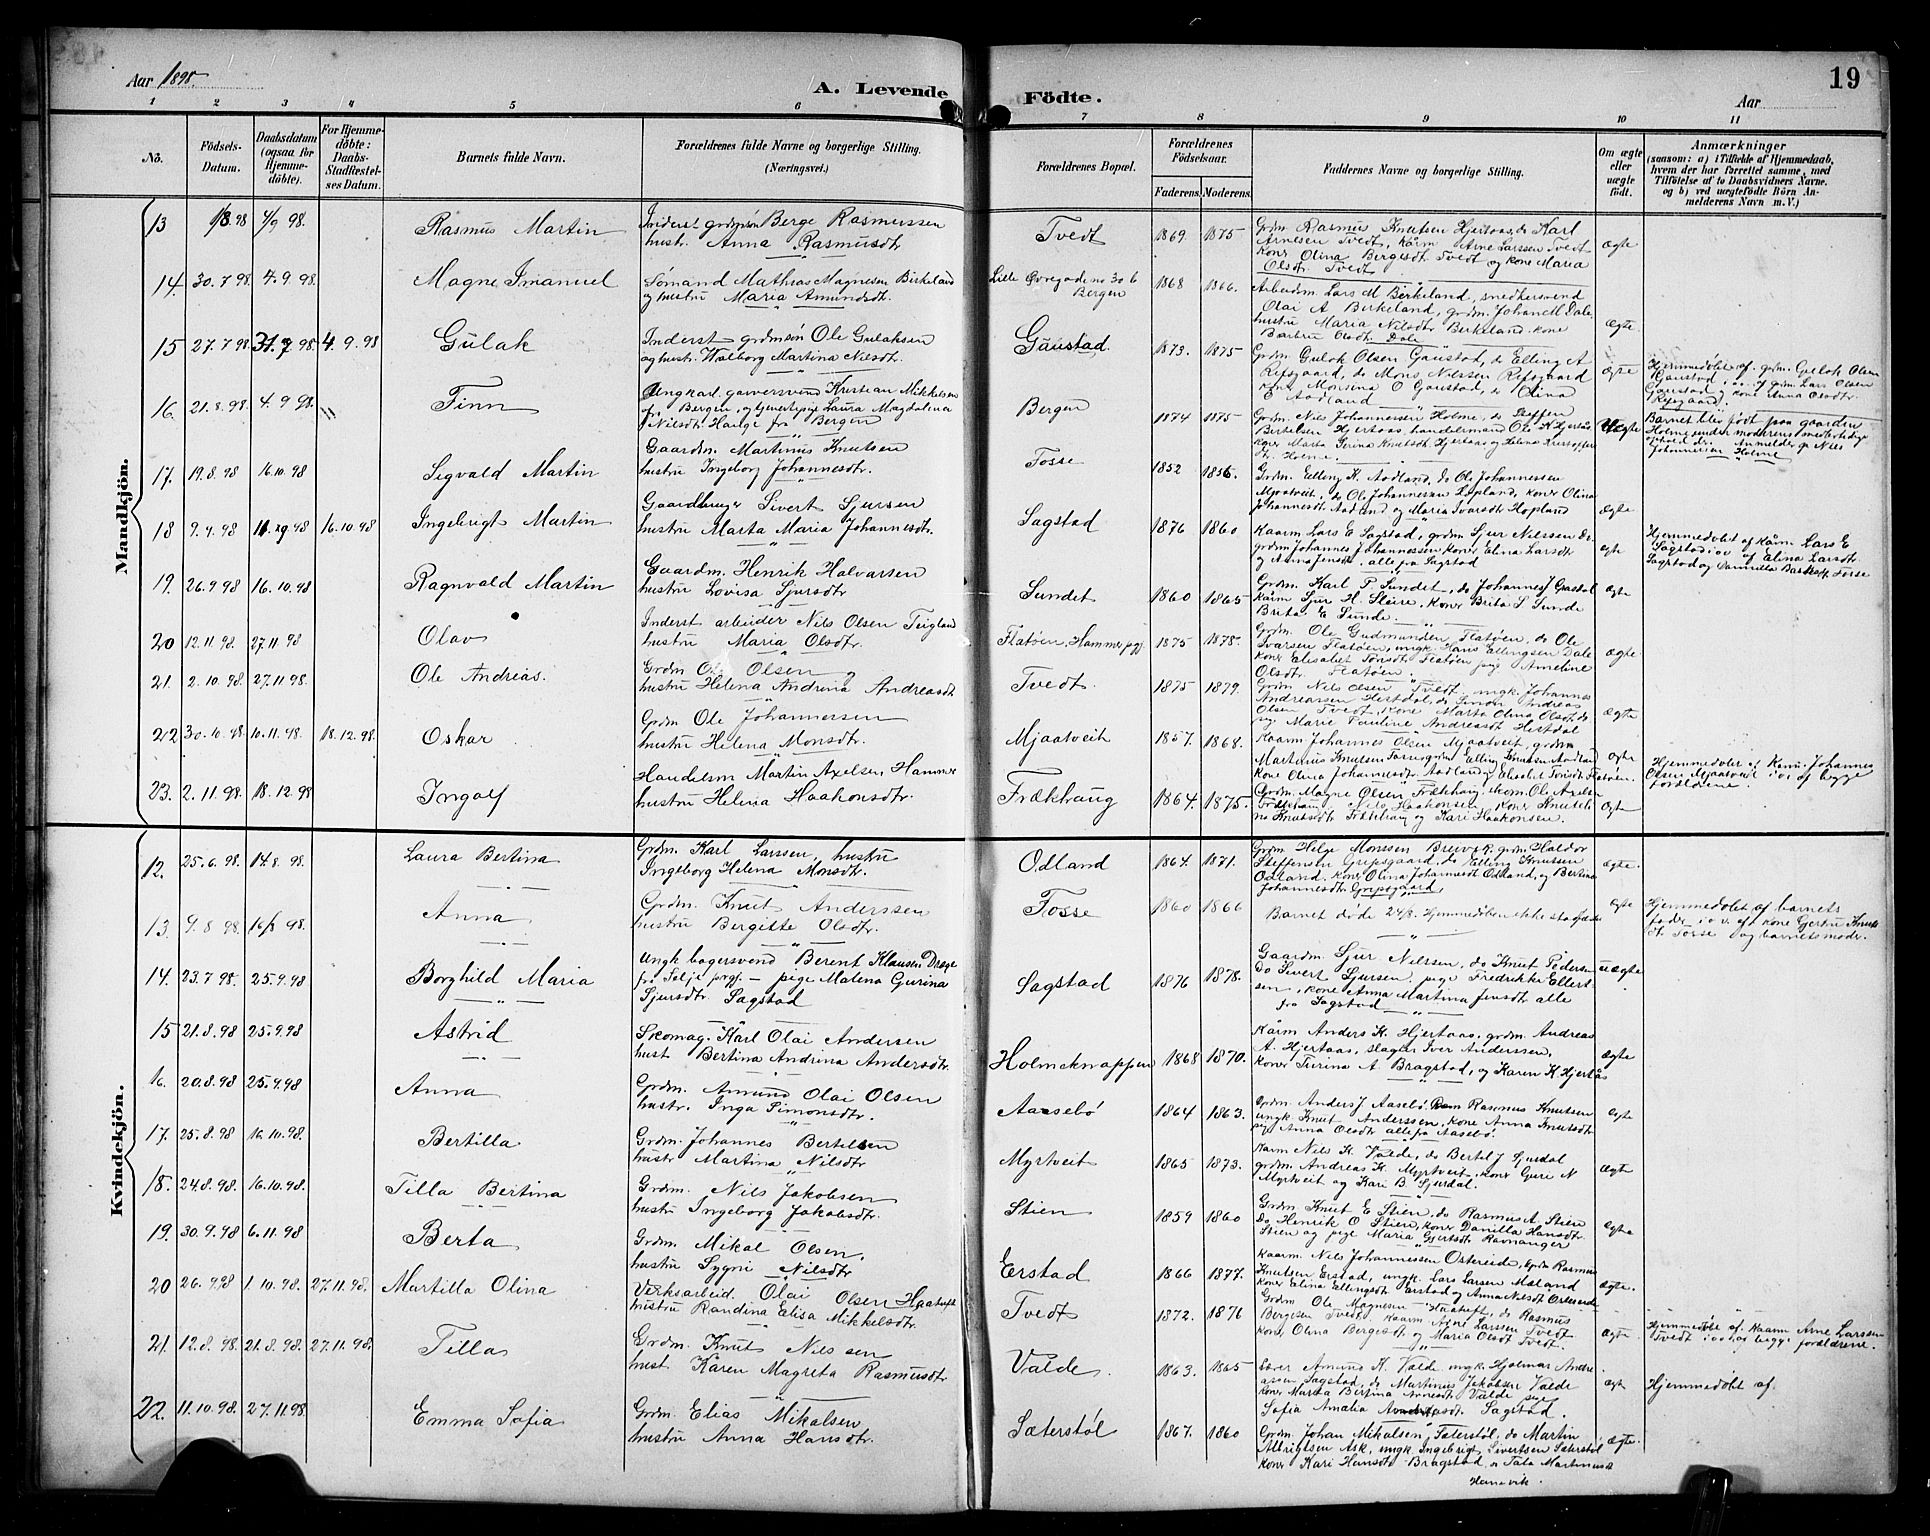 Aar 1898.
A. Levende Födte.
Aar
19
1 2 3 4 5 6 7 8 9 10 11
No.
Födsels-
Datum.
Daabsdatum
(ogsaa for
Hjemme-
döbte).
For Hjemme-
döbte:
Daabs-
Stadfæstel-
ses Datum.
Barnets fulde Navn.
Forældrenes fulde Navne og borgerlige Stilling.
(Næringsvei).
Forældrenes Bopæl.
Forældrenes
Födselsaar.
Faderens. Moderens.
Faddernes Navne og borgerlige Stilling.
Om ægte
eller
uægte
födt.
Anmærkninger
(saasom: a) i Tilfælde af Hjemmedaab,
hvem der har forrettet samme, med
Tilföielse af to Daabsvidners Navne.
og b) ved uægtefödte Börn An-
melderens Navn m. V.)
Mandkjön.
13 4/9 98. Rasmus Martin Inderst Berge Rasmussen
hustr. Anna Rasmusdtr
Tvedt 1869. 1875 Grdm. Rasmus Knutsen Hjertaas, do Karl
Arnesen Tvedt, Kårm Arne Larssen Tvedt
koner Olina Bergesdt Tvedt og kone Maria
Olsdt. Tvedt
ægte
14. 30.7.98 4.9.98 Magne Imanuel Sømand Mathias Magnesen Birkeland
og hustru Maria Amundsdt.
Lille Øvregade no 30 b
Bergen
1868 1866. Arbeidm. Lars M Birkeland, snedkersvend
Olai A Birkeland, grdm. Johan M Dale
hustru Maria Nilsdtr Birkeland. kone
Barbru Olsdt. Dale
ægte.
15 27.7.98 31.7.98 4.9.98 Gulak Inderst grdmsön Ole Gulaksen
og hust. Walborg Martina Nilsdt.
Gaustad. 1873. 1875 Grdm. Gulak Olsen Gaustad, do Elling A
Refsgaard, do Mons Nilssen Refsgaard
kone Monsina O Gaustad, do Olina
E Aadland
ægte
Hjemmedøbt af grdm. Gulak Olsen
Gaustad, af grdm Lars Olsen
Gaustad, kone Anna Olsdtr.
Refsgaard.
16. 21.8.98. 4.9.98. Finn Ungkarl garversvend Kristian Mikkelsen
fra Bergen, og tjenestepige Laura Magdalena
Nilsdt. Hauge fra Bergen
Bergen 1874 1875 Grdm. Nils Johannessen Holme, do Steffen
Bertelsen Hjertaas, handelsmand Ole K Hjertås
koner Marta Serina Knutsdt. Hjertaas og Helena
Holme.
Uægte
Barnet blev født paa gaarden
Holme under moderens
ophold der. Anmelder gr Nils
Johannessen Holme
17. 19.8.98 16.10.98 Sigvald Martin Gaardm. Martinus Knutsen
hustru Ingeborg Johannesdtr.
Fosse 1852 1856. Grdm. Elling K. Aadland, do Ole Johannessen
Mjaatveit, do Ole Johannessen Hopland, koner Olina
Johannesdt Aadland og Maria Ivarsdt Hopland
ægte
18 9.9.98 16.10.98 Ingebrigt Martin Gaardbruger Sivert Sjursen
hustru Marta Maria Johannesdtr.
Sagstad 1876 1860 Kaarm Lars E Sagstad, grdm. Sjur Nilssen Do.
grdm Johannes Johannessen koner Elina Larsdt
og Anna Jensdt. alle fra Sagstad
ægte
Hjemmedøbt af kårm. Lars E
Sagstad i o v af Elina Larsdt.
Sagstad og
Fosse
19. 26.9.98 16.10.98 Ragnvald Martin Gaardm. Henrik Halvarsen
hustru Lovisa Sjursdtr
Sundet 1860 1865 Grdm. Karl P Sundet, do Johannes J Gaastad
kårm Sjur H Steire, koner Brita S Sunde
Brita E Sunde.
ægte
20 12.11.98 27.11.98 Olav Inderst arbeider Nils Olsen Teigland
hustru Maria Olsdtr.
Flatøen, Hammer pgj. 1875 1878. Grdm. Ole Gudmundsen Flatøen, do Ole
Ivarsen Flatøen, ungk. Hans Ellingsen Dale
koner Elisabet Tonsdt. Flatøen pig Anneline
Olsdt. Flatøen.
ægte
21. 2.10.98 27.11.98 Ole Andreas. Grdm Ole Olsen og
hustru Helena Andrina Andreasdt
Tvedt. 1875 1879. Grdm Nils Olsen Tvedt. ungk. Johannes
Andreassen Hestdal, do Simon Andreas
Olsen Tvedt, kone Marta Olina Olsdt. do
pig. Marie Pauline Andreasdt Hestdal
ægte
22 30.10.98. 10.11.98. 18.12.98. Oskar Grdm Ole Johannessen
hustru Helena Monsdtr.
Mjaatveit 1857. 1868. Kaarm. Johannes Olsen Mjaatveit, grdm
Martinus Knutsen Elling Knutsen Aadland
kone Olina Johannesdtr Aadland og Elisabet Tonsdt Flatøen.
ægte
Hjemmedøbt af Kårm. Johannes
Olsen Mjaatveit i o v. af begge
forældrene.
23. 2.11.98. 18.12.98 Ingolf Handelsm Martin Axelsen, Hammer
hustru Helena Haakonsdtr.
Frækhaug 1864. 1875. Grdm. Magne Olsen Frækhaug, skom. Ole Axelsen
Nils Haakonsen koner Knutsdt Frækhaug og Kari Haakonsen.
ægte
Kvindekjön.
12. 25.6.98. 14.8.98. Laura Bertina Grdm. Karl Larssen, hustru
Ingeborg Helena Monsdtr.
Odland 1864. 1871. Grdm Helge Monssen Breivik, grdm. Haldor
Steffensen Gripsgaard, do Elling Knutsen
Odland. koner Olina Johannesdt Odland, og Bertina
Johannesdt Gripsgaard,
ægte.
13. 9.8.98. 16/8 98. Anna Grdm. Knut Anderssen
hustru Bergitte Olsdtr.
Fosse 1860 1866 Barnet døde 24/8. Hjemmedåben ikke stadfæstet
ægte
Hjemmedøbt af barnets
fader i o v. af kone Gjertru Knuts
dt. Fosse og barnets moder.
14. 23.7.98. 25.9.98 Borghild Maria Ungk bagersvend Berent Klausen Drage
fra Selje prgj. - pige Malena Gurina
Sjursdtr. Sagstad
Sagstad 1876 1878. Gaardm. Sjur Nilssen, do Knut Pedersen
Do Sivert Sjursen, pige Fredrikke Ellert
sen, kone Anna Martina Jensdt alle
fra Sagstad
uægte
15 21.8.98 25.9.98 Astrid Skomag. Karl Olai Andersen
hust. Bertina Andrina Andersdtr.
Holmeknappen 1868 1870. Kårm Anders K. Hjertaas, grdm. Andreas
A. Hjertaas, slagter Iver Anderssen,
koner Turina A. Bragstad, og Karen K Hjertås
ægte
16. 20.8.98 25.9.98 Anna Grdm. Amund Olai Olsen
hustr. Inga Simonsdtr.
Aasebö 1864 1863. Grdm. Anders J Aasebö. Rasmus Knutsen
ungk Knut Anderssen, kone Anna Knutsdt.
pig Anna Olsdt alle fra Aasebö.
ægte
17. 25.8.98 16.10.98. Bertilla Grdm. Johannes Bertelsen
hustr. Martina Nilsdtr
Myrtveit 1865 1873. Karm Nils K. Valde, do Bertel J Sjurdal
grdm. Andreas K. Myrtveit, koner Guri N
Myrtveit og Kari B. Sjurdal.
ægte
18. 24.8.98. 16.10.98. Tilla Bertina Grdm. Nils Jakobsen
hustr Ingeborg Jakobsdtr.
Stien 1859 1860 Grdm. Knut E Stien, do Rasmus A. Stien
Do Henrik O Stien, koner Danilla Hansdt.
Stien og pige Maria Gjertsdt. Ravnanger
ægte
19. 30.9.98 6.11.98 Berta Grdm. Mikal Olsen.
hustr. Sygni Nilsdtr
Erstad 1866 1877. Kaarm. Nils Johannessen Ostereide, Grdm Rasmus
Knutsen Erstad, ungk. Lars Larsen Mæland
koner Elina Ellingsdt Erstad og Anna Nilsdt Ostereide
ægte.
20 26.9.98 1.10.98. 27.11.98. Martilla Olina Verksarbeid. Olai Olsen Haatuft
hustru Randina Elisa Mikkelsdtr.
Tvedt 1872. 1876 Grdm Ole Magnesen Haatuft, do Rasmus
Bergesen Tvedt, kaarm Arne Larssen Tvedt
koner Olina Bergesdt og Maria Olsdt Tvedt
ægte
Hjemmedøbt af Kaarm Arne Larssen
Tvedt i o v. af begge forældrene.
21. 12.8.98 21.8.98 27.11.98. Tilla Grdm. Knut Nilssen
hust. Karen Magreta Rasmusdtr
Valde. 1863. 1865 Lærer Amund K. Valde ungk. Hjalmar Andre
assen Sagstad, do Martinus Jakobsen Valde
koner Marta Bertina Arnesdt. Valde
Sofia Amalia Sagstad.
ægt
Hjemmedøbt af
22. 11.10.98. 27.11.98. Emma Sofia Grdm. Elias Mikalsen
hustru Anna Hansdtr.
Sæterstøl 1867. 1860 Grdm Johan Mikalsen, Sæterstøl, do Martin
Albrigtsen Ask, ungk. Ingebrigt Sivertsen Sæterstøl
koner Kari Hansdt. Bragstad, Martinusdt
Hanevik.
ægte.